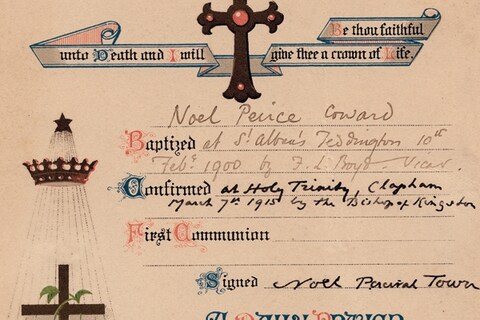 Be thou faithful
unto Death and I will give thee a crown of Life.
Noel Peirce Coward
Baptized at St Alban's Teddington 10th
Feby. 1900 by F. L. Boyd - Vicar.
Confirmed at Holy Trinity, Clapham
March 7th 1915 by the Bishop of Kingston
First Communion
Signed Noel Percival Town